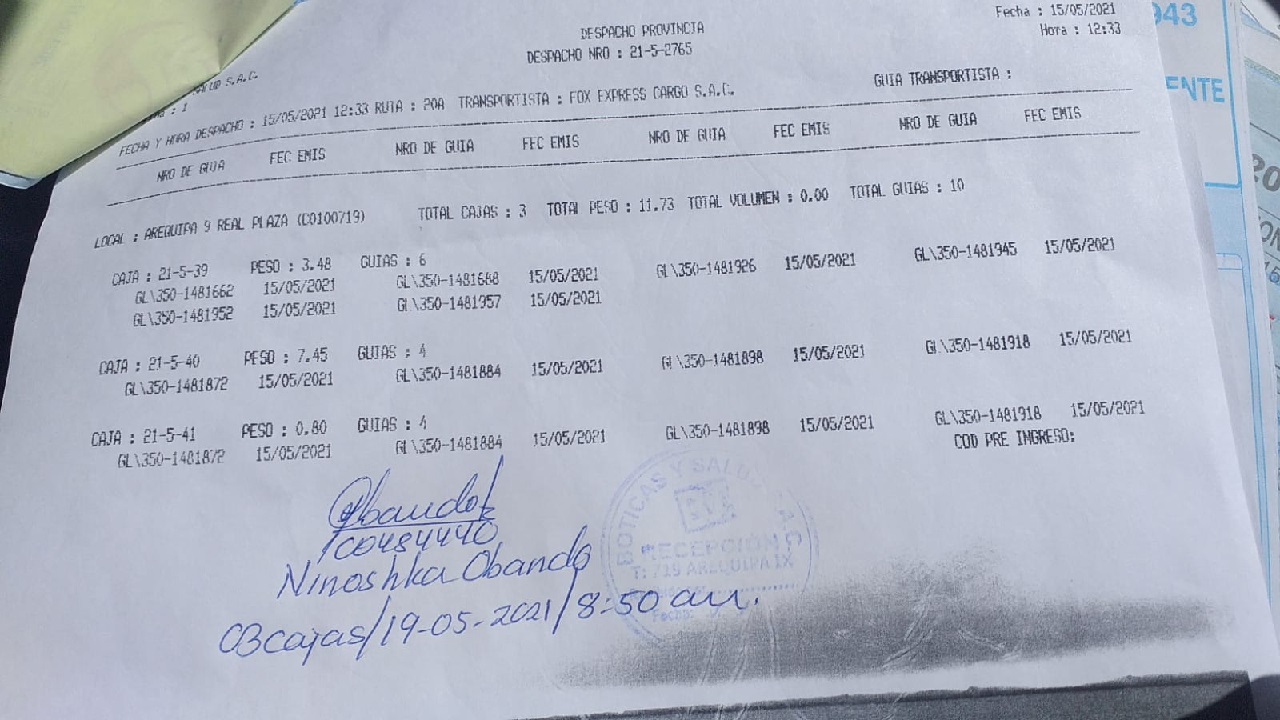 Fecha : 15/05/2021
Hora : 12:33
DESPACHO PROVINCIA
DESPACHO NRO : 21-5-2765
S.A.C.
: 1
GUIA TRANSPORTISTA :
FECHA Y HORA DESPACHO : 15/05/2021 12:33 RUTA : 20A TRANSPORTISTA : FOX EXPRESS CARGO S.A.C.
NRO DE GUIA FEC EMIS NRO DE GUIA FEC EMIS NRO DE GUIA FEC EMIS NRO DE GUIA FEC EMIS
LOCAL : AREQUIPA 9 REAL PLAZA (C0100719) TOTAL CAJAS : 3 TOTAL PESO : 11.73 TOTAL VOLUMEN : 0.00 TOTAL GUIAS : 10
CAJA : 21-5-39 PESO : 3.48 GUIAS : 6
GL\350-1481662 15/05/2021 GL\350-1481688 15/05/2021 GL\350-1481926 15/05/2021 GL\350-1481945 15/05/2021
GL\350-1481952 15/05/2021 GL\350-1481957 15/05/2021
CAJA : 21-5-40 PESO : 7.45 GUIAS : 4
GL\350-1481872 15/05/2021 GL\350-1481884 15/05/2021 GL\350-1481898 15/05/2021 GL\350-1481918 15/05/2021
CAJA : 21-5-41 PESO : 0.80 GUIAS : 4
GL\350-1481872 15/05/2021 GL\350-1481884 15/05/2021 GL\350-1481898 15/05/2021 GL\350-1481918 15/05/2021
COD PRE INGRESO:
C0484440
Ninoshka Obando
03 cajas/19-05-2021/8:50 am.
BOTICAS Y SALUD S.A.C
RECEPCION
T: 719 AREQUIPA IX
Fecha:
943
ENTE
20